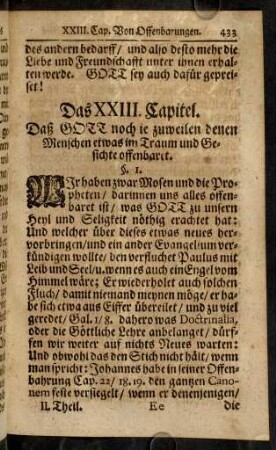 XXIII. Cap. Von Offenbarungen. 433
des andern bedarff/ und also desto mehr die
Liebe und Freundschafft unter ihnen erhal-
ten werde. GOTT sey auch dafür geprei-
set!
Das XXIII. Capitel.
Daß GOTT noch je zuweilen denen
Menschen etwas im Traum und Ge-
sichte offenbaret.
§. 1.
WIr haben zwar Mosen und die Pro-
pheten/ darinnen uns alles offen-
barit ist/ was GOTT zu unsern
Heyl und Seligkeit nöthig erachtet hat:
Und welcher über dieses etwas neues her-
vorbringen/ und ein ander Evangelium ver-
kündigen wollte/ den verfluchet Paulus mit
Leib und Seel/ u. wenn es auch ein Engel vom
Himmel wäre; Er wiederholet auch solchen
Fluch/ damit niemand meynen möge/ er ha-
be sich etwa aus Eiffer übereilet/ und zu viel
geredet/ Gal. 1/ 8. daher was Doctrinalia,
oder die Göttliche Lehre anbelanget/ dürf-
fen wir weiter auf nichts Neues warten:
Und obwohl das den Stich nicht hält/ wenn
man spricht: Johannes habe in seiner Offen-
bahrung Cap. 22/ 18. 19. den gantzen Cano-
nem feste versiegelt/ wenn er denenjenigen/
II. Theil. Ee die